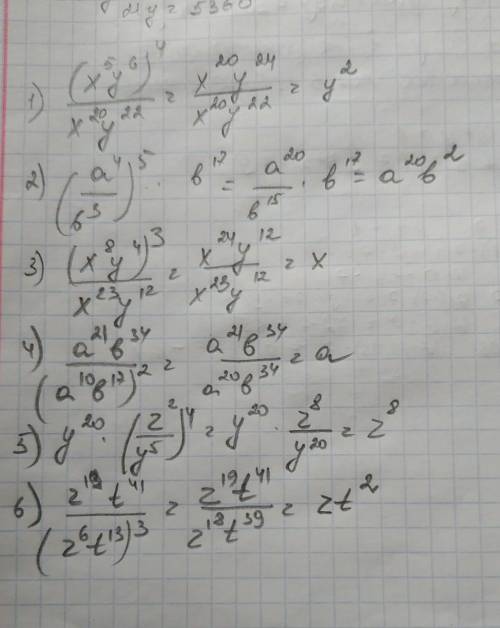 му = 5360
1) (x⁵y⁶)⁴ / x²⁰y²² = x²⁰y²⁴ / x²⁰y²² = y²
2) (a⁴/b³)⁵ · b¹⁷ = a²⁰/b¹⁵ · b¹⁷ = a²⁰b²
3) (x⁸y⁴)³ / x²³y¹² = x²⁴y¹² / x²³y¹² = x
4) a²¹b³⁴ / (a¹⁰b¹⁷)² = a²¹b³⁴ / a²⁰b³⁴ = a
5) y²⁰ · (z²/y⁵)⁴ = y²⁰ · z⁸/y²⁰ = z⁸
6) z¹⁹t⁴¹ / (z⁶t¹³)³ = z¹⁹t⁴¹ / z¹⁸t³⁹ = zt²